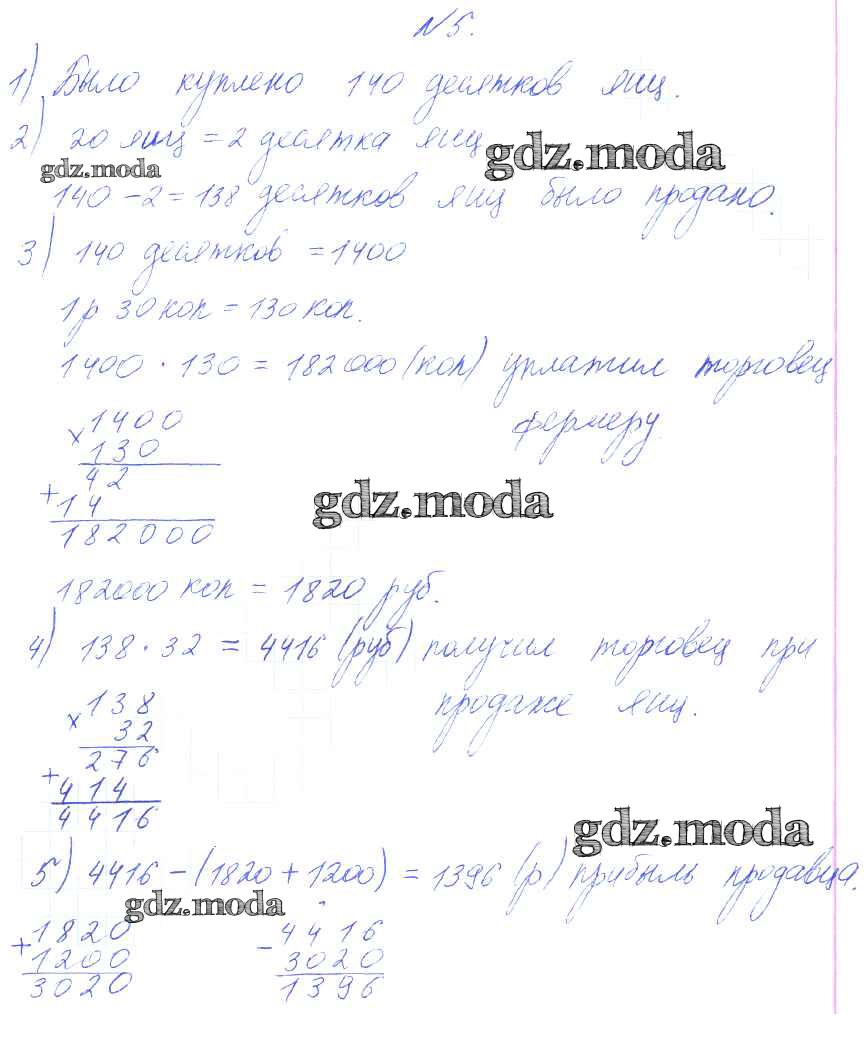 N 5.
1) Было куплено 140 десятков яиц.
2) 20 яиц = 2 десятка яиц
gdz.moda
gdz.moda
140 - 2 = 138 десятков яиц было продано.
3) 140 десятков = 1400
1 р 30 коп = 130 коп.
1400 · 130 = 182 000 (коп) уплатил торговец
фермеру.
× 1400
130
42
+ 14
182000
gdz.moda
182000 коп = 1820 руб.
4) 138 · 32 = 4416 (руб) получил торговец при
продаже яиц.
× 138
32
276
+ 414
4416
gdz.moda
5) 4416 - (1820 + 1200) = 1396 (р) прибыль продавца.
gdz.moda
+ 1820 - 4416
1200 3020
3020 1396